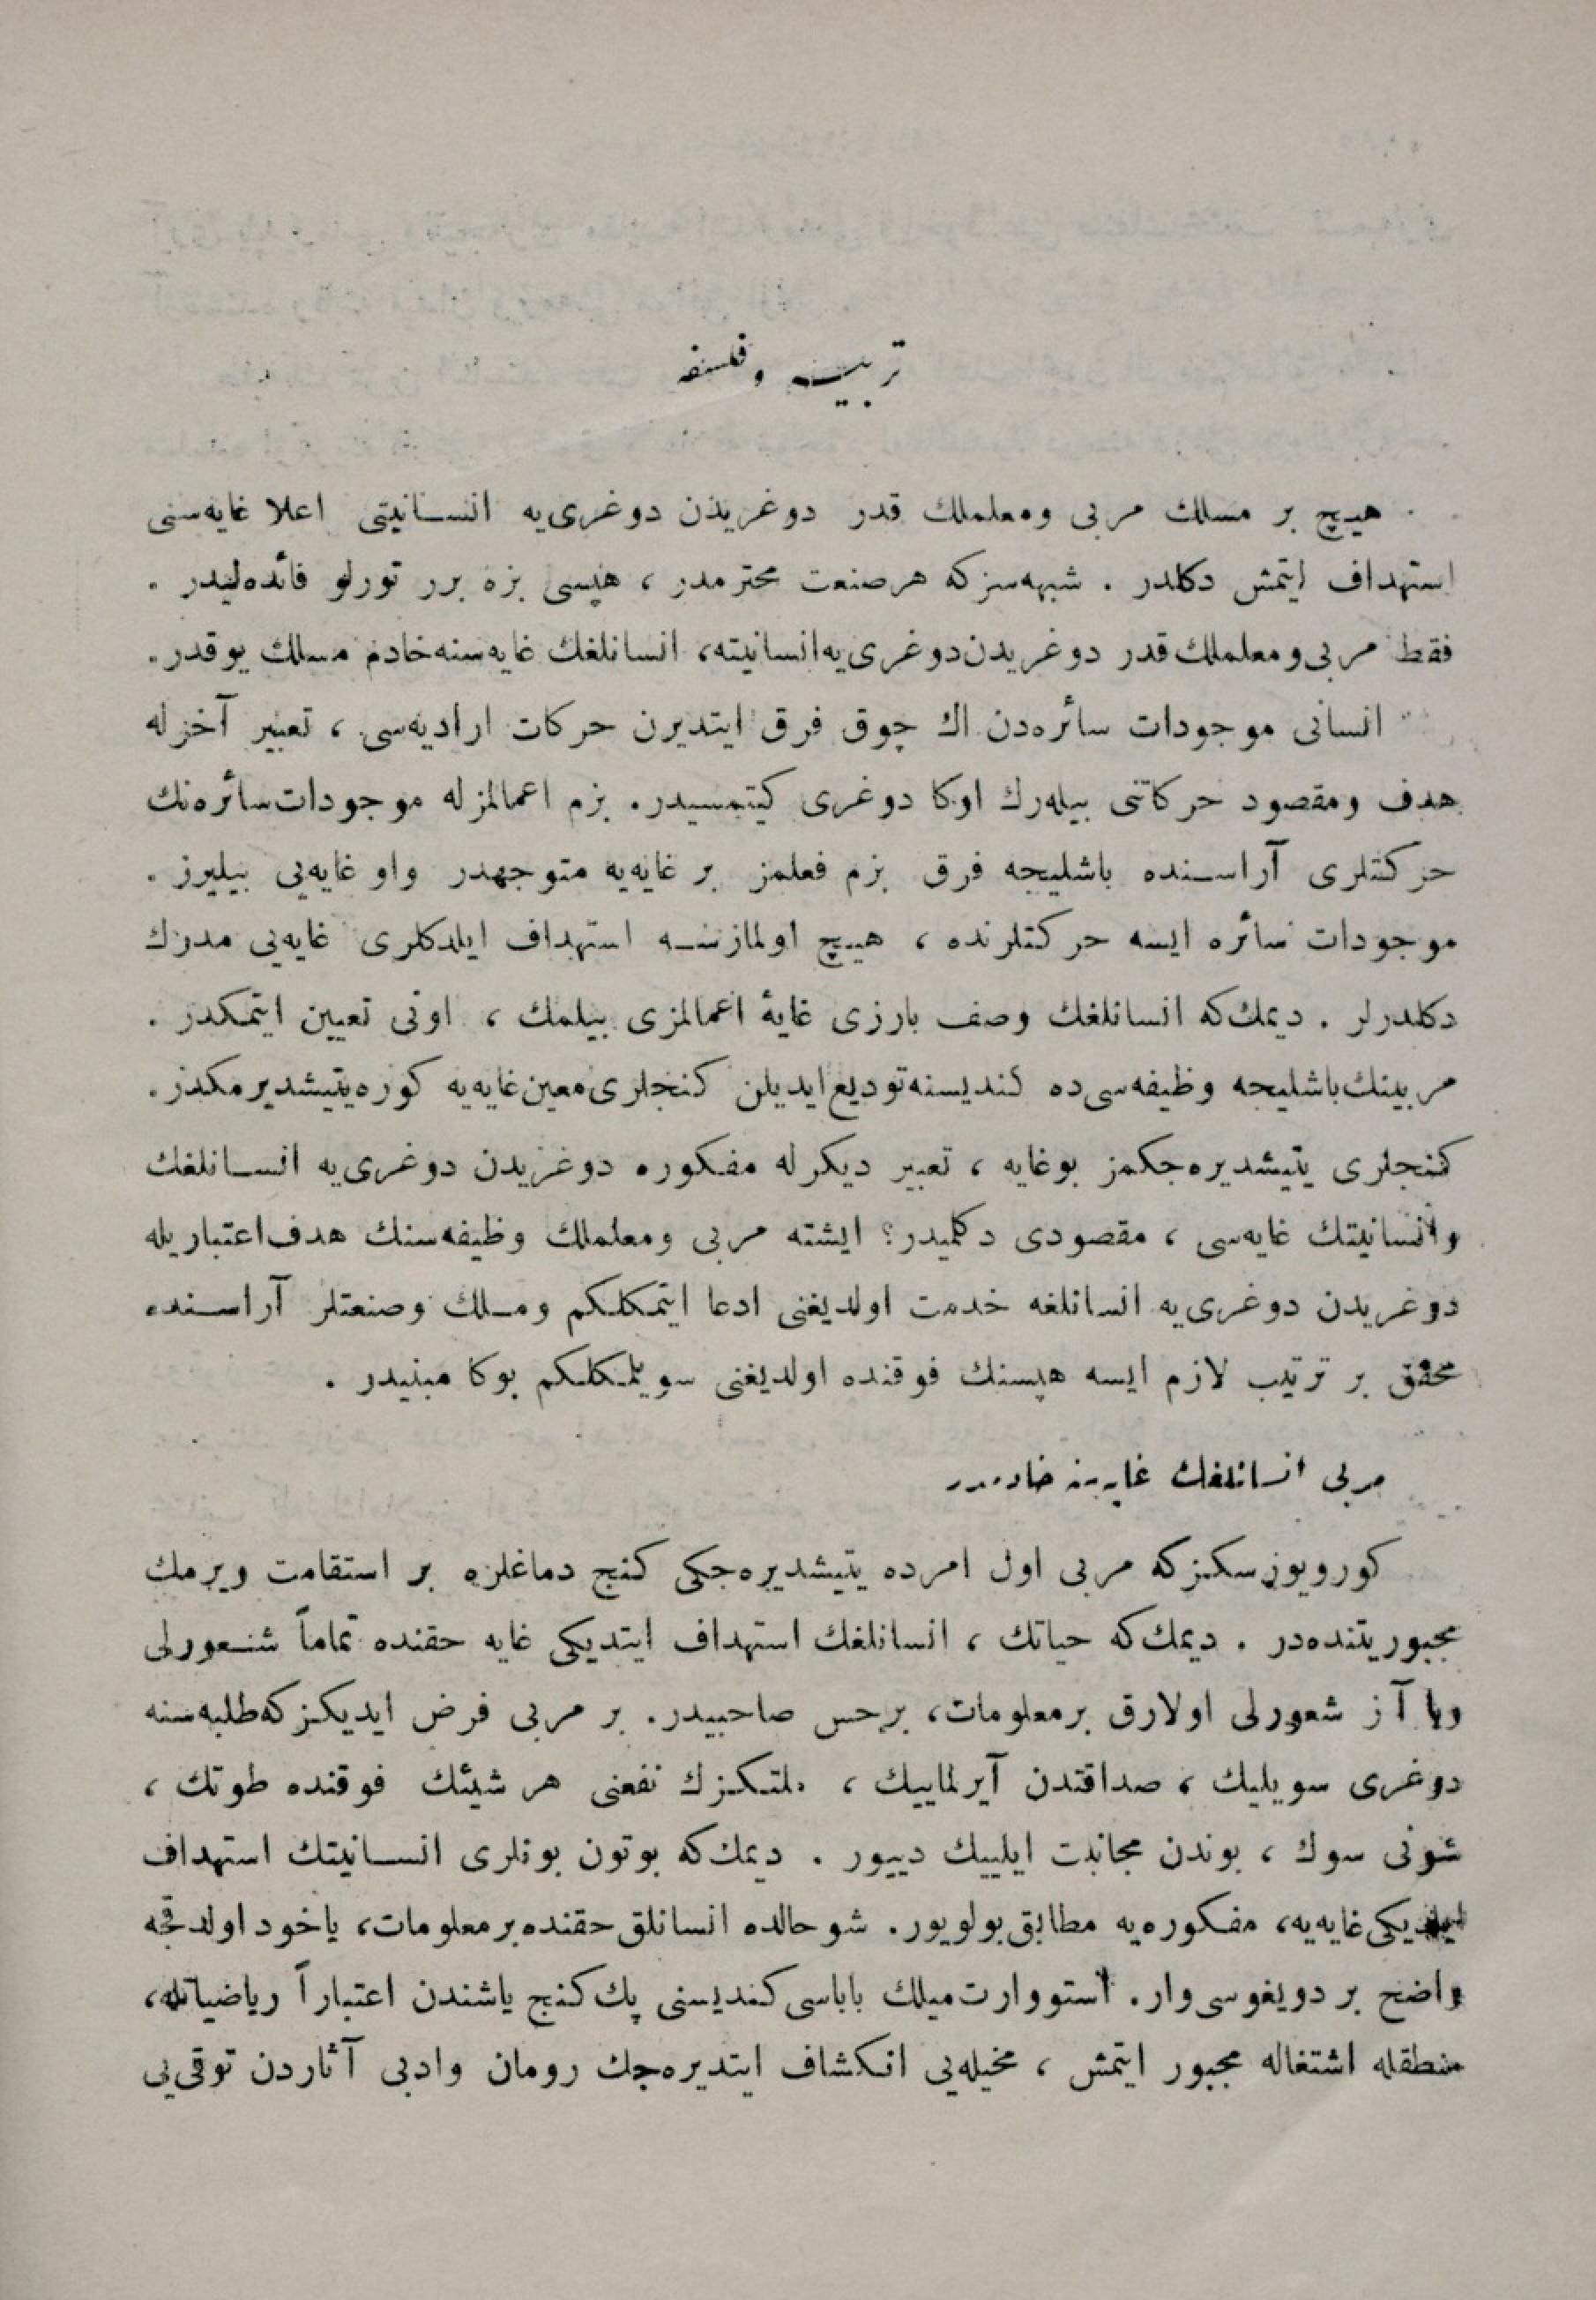 تربيه وفلسفه
هيچ بر مسلك مربی ومعلملك قدر دوغریدن دوغری‌یه انسانیتی اعلا غایه‌سنی
استهداف ایتمش دكلدر . شبهه‌سزكه هرصنعت محترمدر ، هپسی بزه برر تورلو فائده‌لیدر .
فقط مربی ومعلملك قدر دوغریدن دوغری‌یه انسانیته، انسانلغك غایه‌سنه خادم مسلك یوقدر.
انسانی موجودات سائره‌دن اك چوق فرق ایتدیرن حركات ارادیه‌سی ، تعبیر آخرله
هدف ومقصود حركاتنی بیله‌رك اوكا دوغری كیتمسیدر. بزم اعمالمزله موجودات سائره‌نك
حركتلری آراسنده باشلیجه فرق بزم فعلمز بر غایه‌یه متوجهدر واو غایه‌یی بیلیرز .
موجودات سائره ایسه حركتلرنده ، هیچ اولمازسه استهداف ایلدكلری غایه‌یی مدرك
دكلدرلر . دیمك‌كه انسانلغك وصف بارزی غایۀ اعمالمزی بیلمك ، اونی تعیین ایتمكدر .
مربینك باشلیجه وظیفه‌سی ده كندیسنه تودیع ایدیلن كنجلری معین غایه‌یه كوره یتیشدیرمكدر.
كنجلری یتیشدیره‌جكمز بوغایه ، تعبیر دیكرله مفكوره دوغریدن دوغری‌یه انسانلغك
وانسانیتك غایه‌سی ، مقصودی دكلمیدر؟ ایشته مربی ومعلملك وظیفه‌سنك هدف اعتباریله
دوغریدن دوغری‌یه انسانلغه خدمت اولدیغنی ادعا ایتمكلكم ومسلك وصنعتلر آراسنده
محقق بر ترتیب لازم ایسه هپسنك فوقنده اولدیغنی سویلمكلكم بوكا مبنیدر .
مربی انسانلغك غایه‌سنه خادمدر
كورویورسكزكه مربی اول امرده یتیشدیره‌جكی كنج دماغلره بر استقامت ویرمك
مجبوریتنده‌در . دیمك‌كه حیاتك ، انسانلغك استهداف ایتدیكی غایه حقنده تماماً شعورلی
ویا آز شعورلی اولارق برمعلومات، برحس صاحبیدر. بر مربی فرض ایدیكزكه طلبه‌سنه
دوغری سویلیك ، صداقتدن آیرلماییك ، ملتكزك نفعنی هر شیئك فوقنده طوتك ،
شونی سوك ، بوندن مجانبت ایلییك دییور . دیمك‌كه بوتون بونلری انسانیتك استهداف
ایلدیكی غایه‌یه، مفكوره‌یه مطابق بولویور. شو حالده انسانلق حقنده برمعلومات، یاخود اولدقجه
واضح بر دویغوسی وار. استووارت میلك باباسی كندیسنی پك كنج یاشندن اعتباراً ریاضیاتله،
منطقله اشتغاله مجبور ایتمش ، مخیله‌یی انكشاف ایتدیره‌جك رومان وادبی آثاردن توقی‌یی